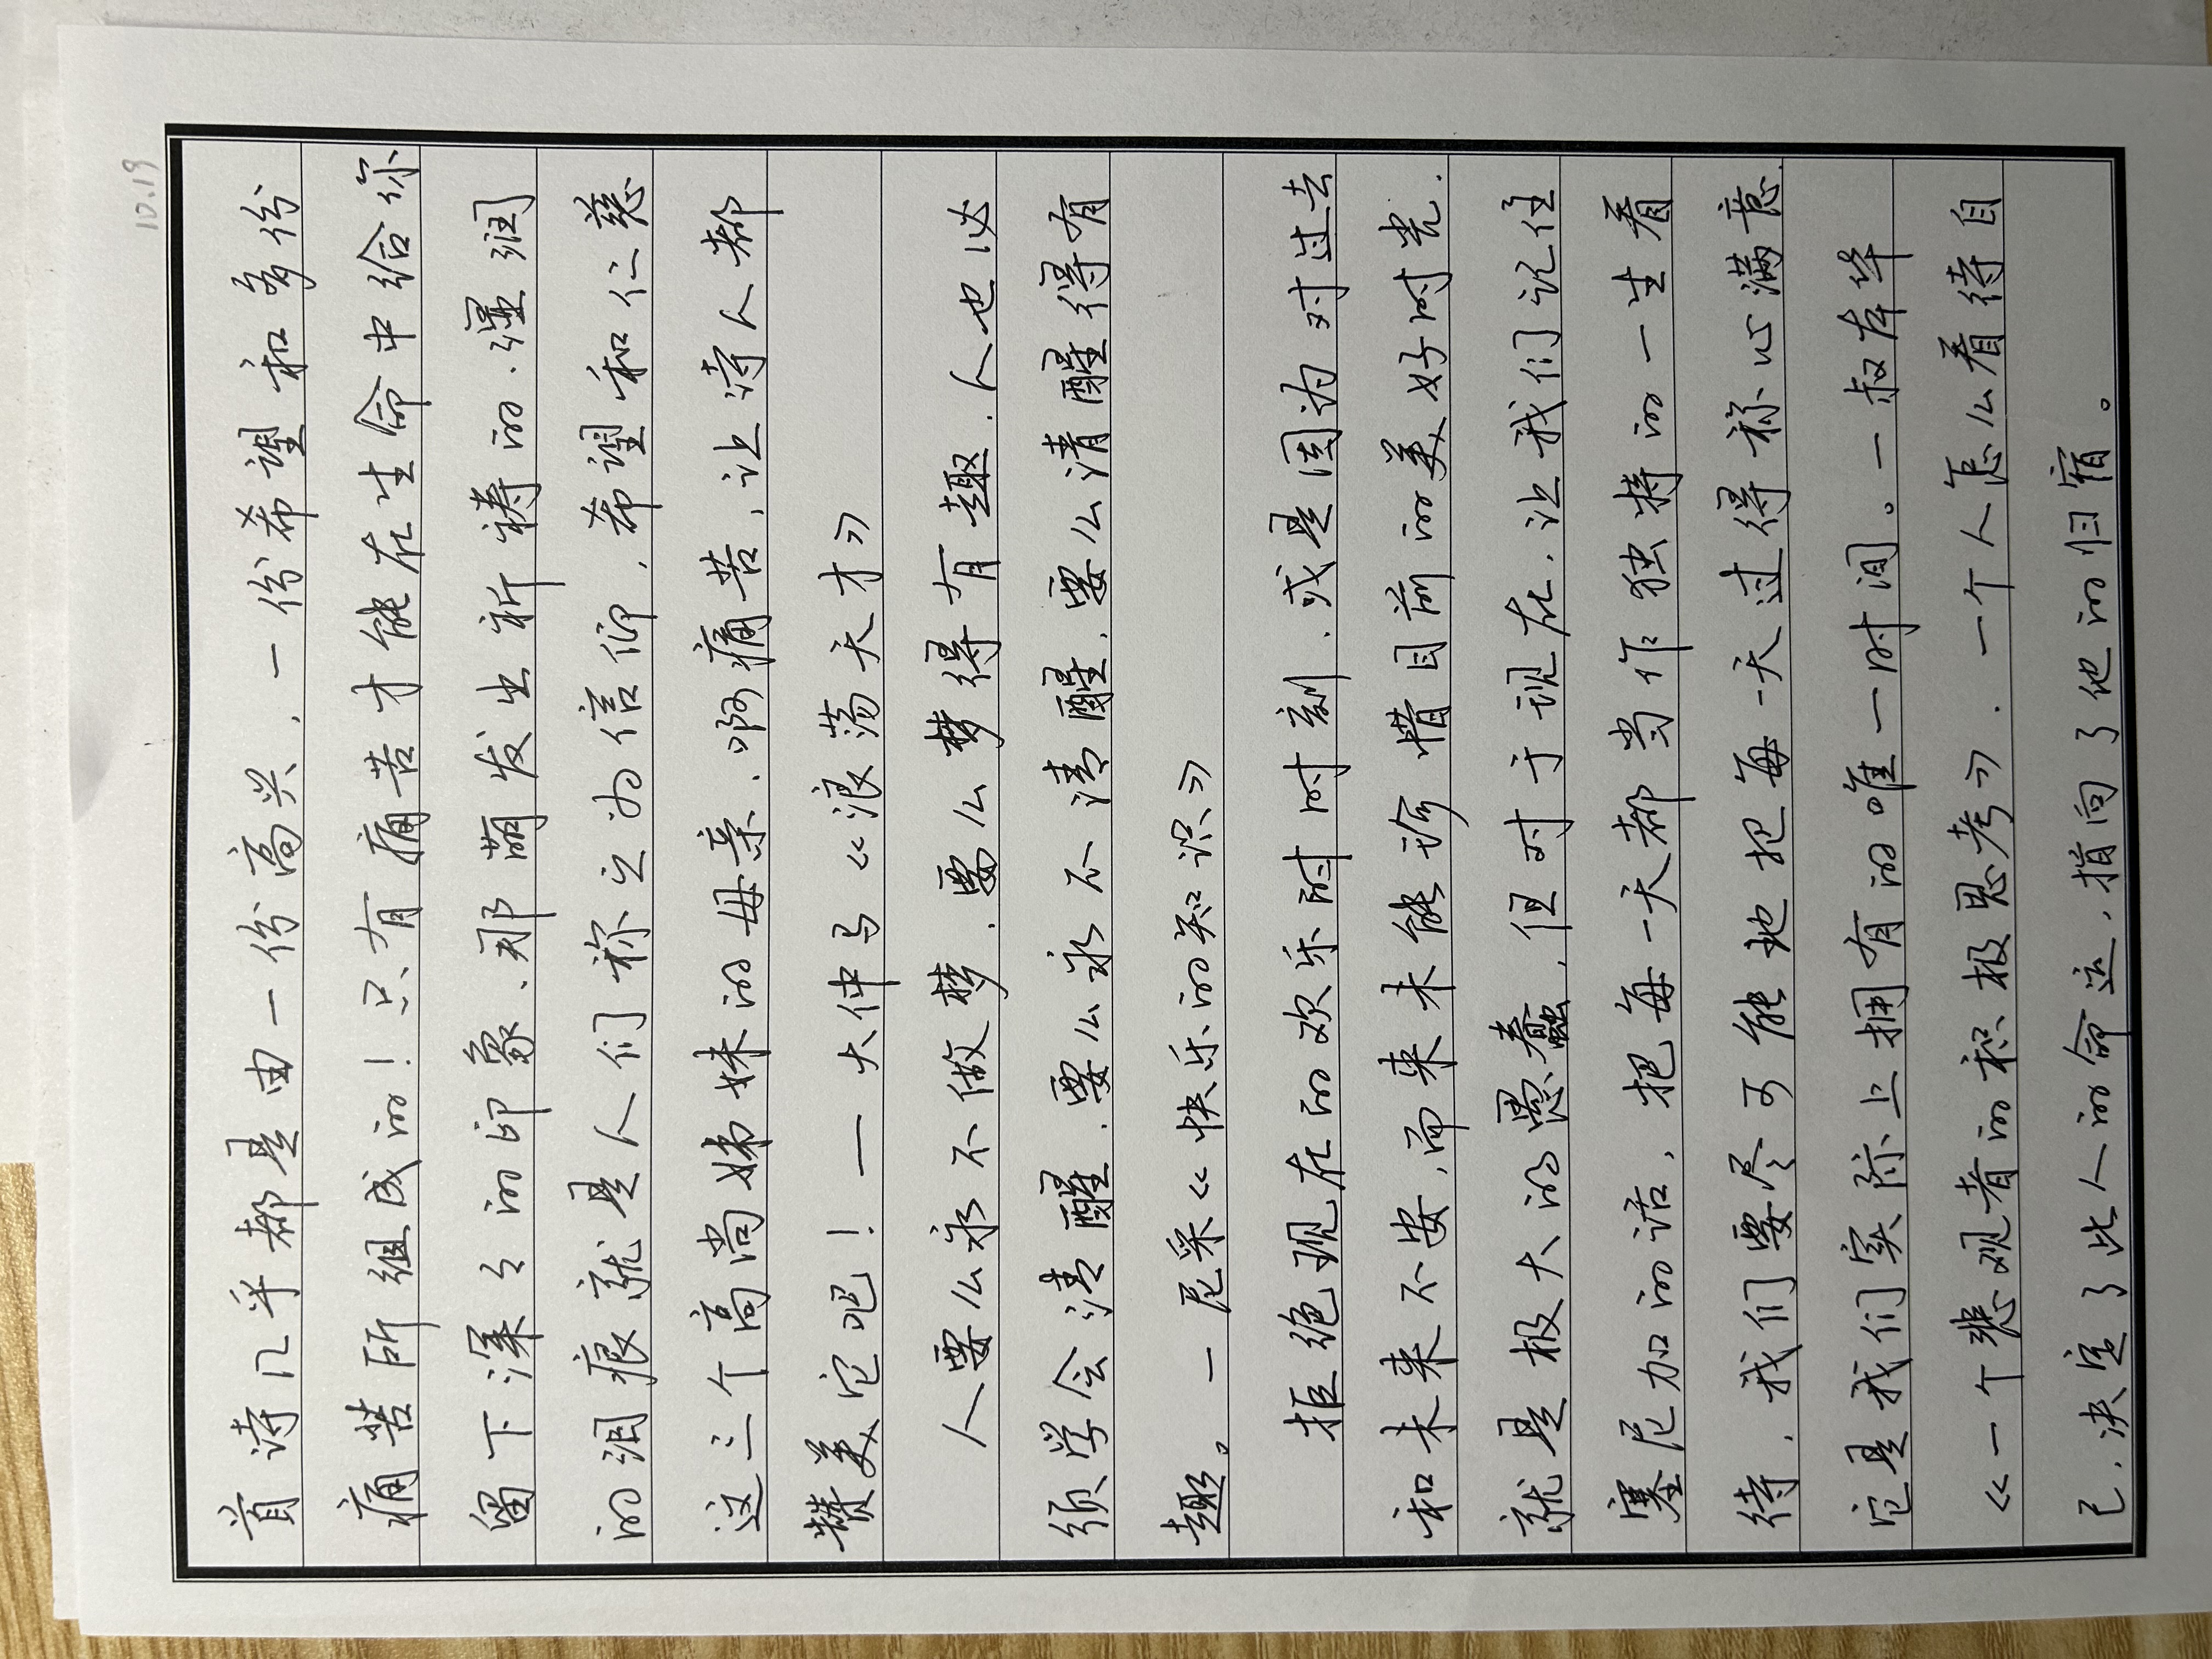 10.19
首诗几乎都是由一份高兴,一份希望和多份
痛苦所组成的!只有痛苦才能在生命中给你
留下深々的印象、那萌发出祈祷的、湿润
的泪痕就是人们称之为信仰,希望和仁慈
这三个高尚姊妹的母亲、啊痛苦,让诗人都
赞美它吧!—大仲马《浪荡天才》
人要么永不做梦、要么梦得有趣、人也必
须学会清醒、要么永不清醒、要么清醒得有
趣。—尼采《快乐的知识》
拒绝现在的欢乐时时刻、或是因为对过去
和未来不安,而来未能珍惜目前的美好时光、
就是极大的愚蠢,但对于现在、让我们记住
塞尼加的话,把每一天都当作独特的一生看
待,我们要尽可能地把每一天过得称心满意、
它是我们实际上拥有的唯一时间。—叔本华
《一个悲观者的积极思考》、一个人怎么看待自
己、决定了此人的命运,指向了他的归宿。